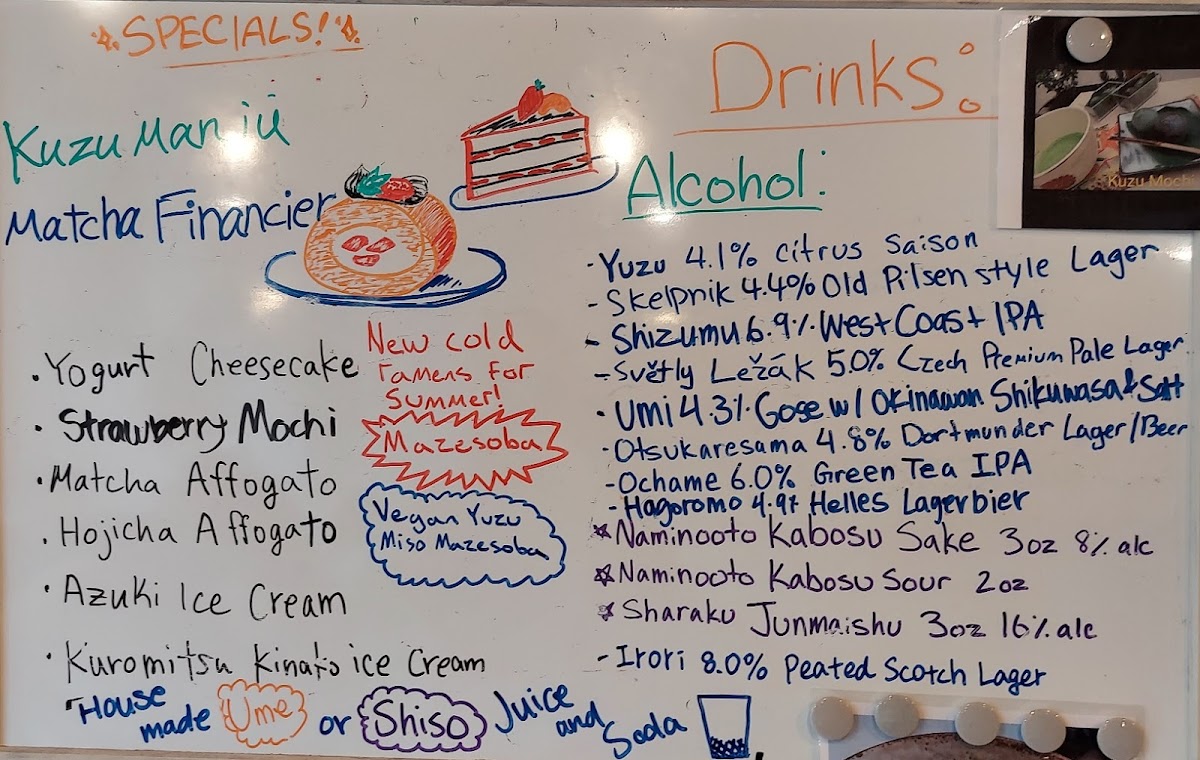 SPECIALS!
Kuzu Manjū
Matcha Financier
· Yogurt Cheesecake
· Strawberry Mochi
· Matcha Affogato
· Hojicha Affogato
· Azuki Ice Cream
· Kuromitsu Kinako ice Cream
New cold
ramens for
summer!
Mazesoba
Vegan Yuzu
Miso Mazesoba
House
made Ume or Shiso Juice
and
Soda
Drinks:
Alcohol:
- Yuzu 4.1% citrus Saison
- Skelpnik 4.4% Old Pilsen style Lager
- Shizumu 6.9% West Coast IPA
- Světly Ležák 5.0% Czech Premium Pale Lager
· Umi 4.3% Gose w/ Okinawan Shikuwasa & Salt
- Otsukaresama 4.8% Dortmunder Lager/Beer
- Ochame 6.0% Green Tea IPA
- Hagoromo 4.9% Helles Lagerbier
☆ Naminooto Kabosu Sake 3oz 8% alc
☆ Naminooto Kabosu Sour 2oz
☆ Sharaku Junmaishu 3oz 16% alc
- Irori 8.0% Peated Scotch Lager
Kuzu Mochi